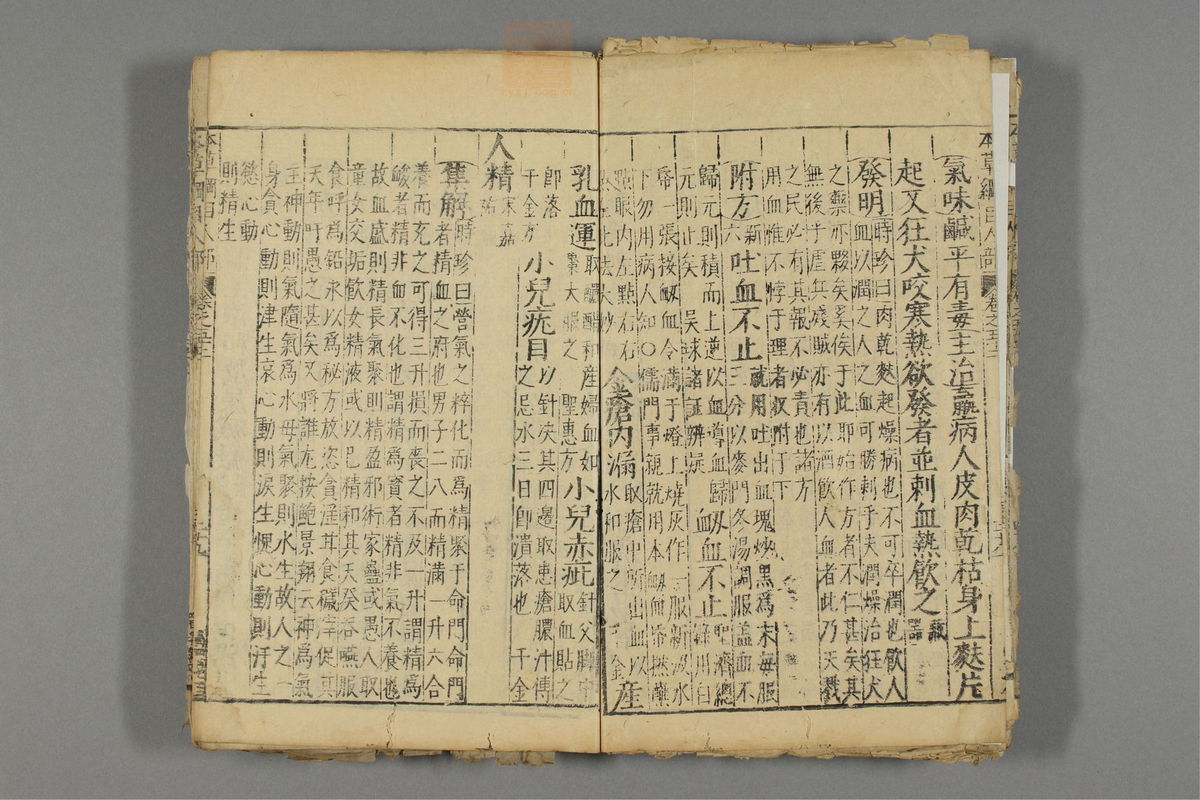 氣味鹹平有毒主治羸病人皮肉乾枯身上麩片
起又狂犬咬寒熱欲發者並刺血熱飲之藏器
發明時珍曰肉乾麩起燥病也不可卒潤也飲人
血以潤之人之血可勝刺乎夫潤燥治狂犬
之藥亦夥矣奚俟于此耶始作方者不仁甚矣其
無後乎虐兵殘賊亦有以酒飲人血者此乃天戮
之民必有其報不必責也諸方
用血惟不悖于理者収附于下
附方新六吐血不止就用吐出血塊炒黑為末每服
三分以麥門冬湯調服蓋血不
歸元則積而上逆以血導血歸
元則止矣吳球諸証辨疑衂血不止聖濟總
錄用白
帋一張接衂血令滿于燈上燒灰作一服新汲水
下勿用病人知○儒門事親就用本衂血
點眼內左點右右
此法大妙金瘡內漏取瘡中所出血以
水和服之
產
乳血運取釅醋和産婦血如
棗大服之聖惠方小兒赤疵針父脚中
取血貼之
卽落
千金方小兒疣目以針决其四邊取患瘡膿汁傅
之忌水三日卽潰落也千金
人精宋嘉祐
集解時珍曰營氣之粹化而為精聚于命門命門
者精血之府也男子二八而精滿一升六合
養而充之可得三升損而喪之不及一升謂精為
峻者精非血不化也謂精為寳者精非氣不養也
故血盛則精長氣聚則精盈邪術家蠱或愚人取
童女交垢飲女精液或以己精和其天癸吞嚥服
食呼為鉛汞以為秘方放恣貪淫甘食穢滓促其
天年吁愚之甚矣又將誰尤按鮑景翔云神為氣
主神動則氣隨氣為水母氣聚則水生故人之一
身貪心動則津生哀心動則淚生愧心動則汗生
慾心動
則精生
本草綱目人部
卷之五十二